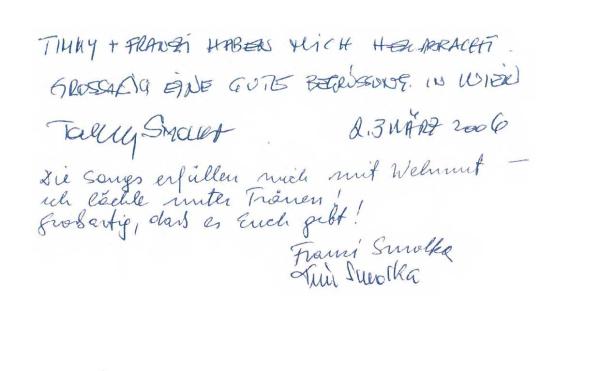 TIMMY + FRANZI HABEN MICH HERGEBRACHT.
GROSSARTIG EINE GUTE BEGRÜSSUNG IN WIEN
2. 3 MÄRZ 2006
Die Songs erfüllen mich mit Wehmut —
ich lächle unter Tränen!
großartig, daß es Euch gibt!
Franzi Smolka
Smolka